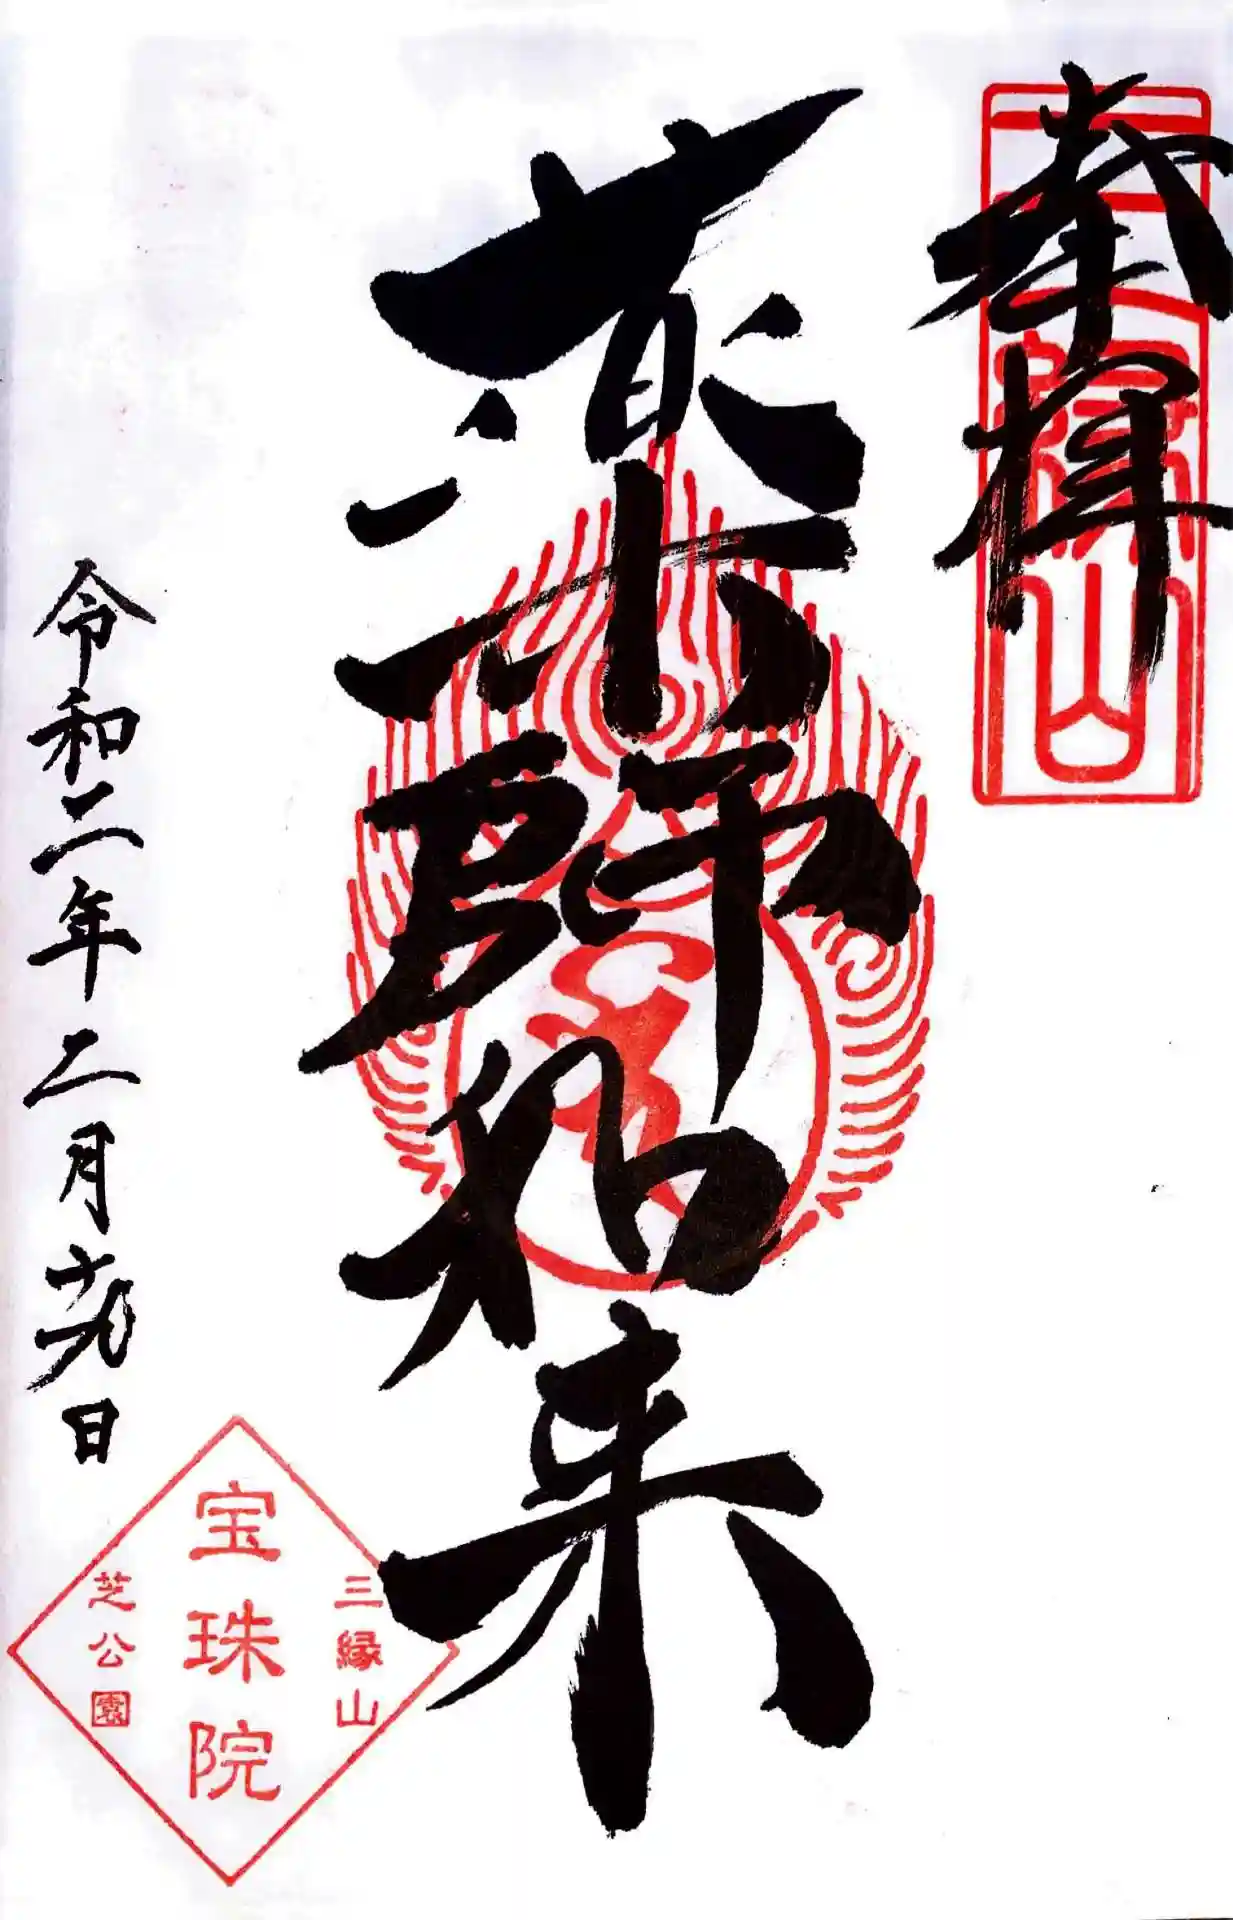 奉拝
三縁山
薬師如来
令和二年二月十九日
三縁山
宝珠院
芝公園